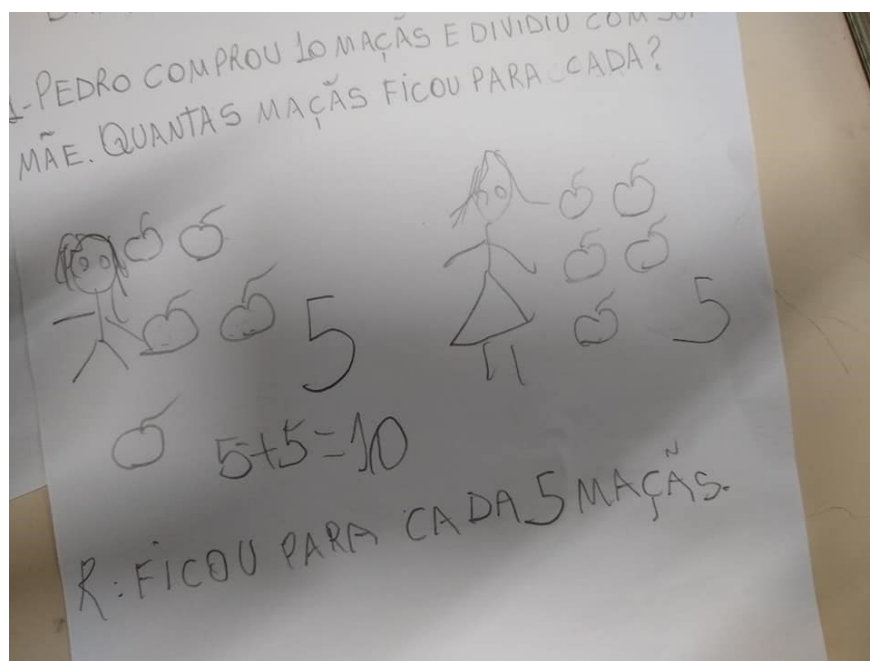 1-PEDRO COMPROU 10 MAÇÃS E DIVIDIU COM
MÃE. QUANTAS MAÇÃS FICOU PARA CADA?
5
5
5+5=10
R: FICOU PARA CADA 5 MAÇÃS.